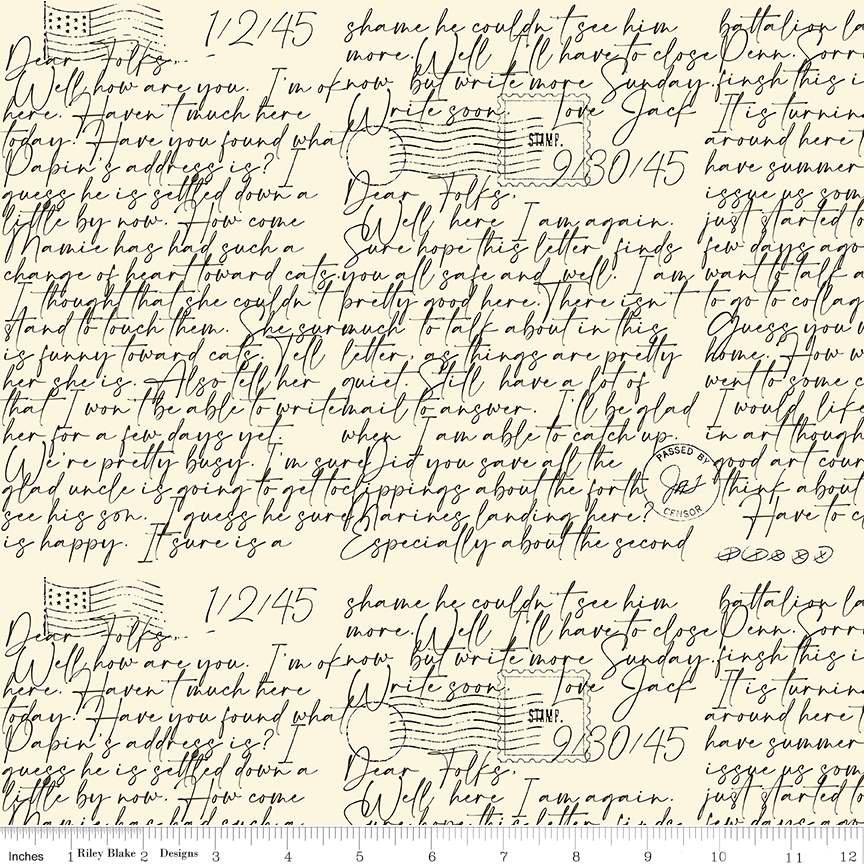 1/2/45
Dear Folks..
Well, how are you. I'm ok
here. Haven't much here
today. Have you found what
Papin's address is? I
guess he is settled down a
little by now. How come
Mamie has had such a
change of heart toward cats.
I thought that she couldn't
stand to touch them. She sur
is funny toward cats. Tell
her she is. Also tell her
that I won't be able to write
her for a few days yet.
We're pretty busy. I'm sure
glad uncle is going to get to
see his son. I guess he sure
is happy. It sure is a
shame he couldn't see him
more. Well I'll have to close
now but write more Sunday.
Write soon. Love Jack
STAMP.
9/30/45
Dear Folks.
Well, here I am again.
Sure hope this letter finds
you all safe and well. I am
pretty good here. There isn't
much to talk about in this
letter, as things are pretty
quiet. Still have a lot of
mail to answer. I'll be glad
when I am able to catch up.
Did you save all the
clippings about the forth
Marines landing here?
Especially about the second
PASSED BY
CENSOR
battalion la
Penn. Sorr
finsh this i
It is turnin
around here t
have summer
issue us som
just started to
few days ago
want to talk a
to go to collag
Guess you w
home. How w
went to some c
I would like
in art though
good art cour
think about
Have to c
1/2/45
Dear Folks..
Well, how are you. I'm ok
here. Haven't much here
today. Have you found what
Papin's address is? I
guess he is settled down a
little by now. How come
Mamie has had such a
shame he couldn't see him
more. Well I'll have to close
now but write more Sunday.
Write soon. Love Jack
STAMP.
9/30/45
Dear Folks.
Well, here I am again.
Sure hope this letter finds
battalion la
Penn. Sorr
finsh this i
It is turnin
around here t
have summer
issue us som
just started to
few days ago
Inches 1 Riley Blake 2 Designs 3 4 5 6 7 8 9 10 11 12